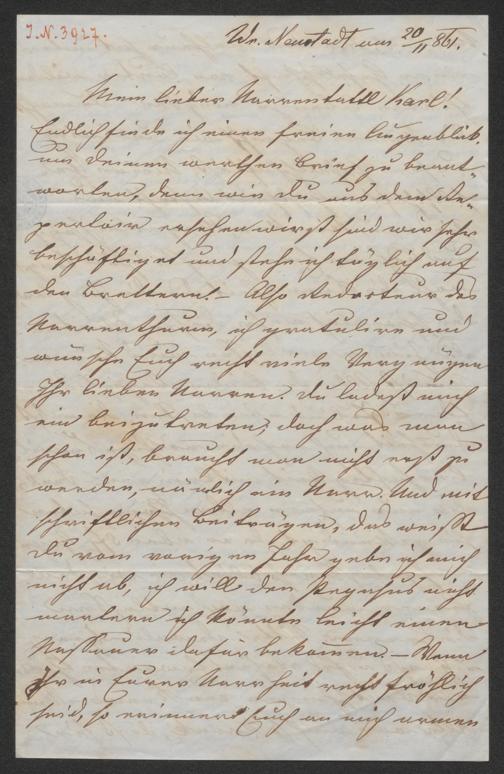 I.N. 3927.
Wr. Neustadt am 20/11 861.
Mein lieber Narrentattl Karl!
Endlich finde ich einen freien Augenblick,
um Deinen werthen Brief zu beant-
worten, denn wie Du aus dem Re-
pertoir ersehen wirst sind wir sehr
beschäftiget und stehe ich täglich auf
den Brettern! – Also Redacteur des
Narrenthurm, ich gratulire und
wünsche Euch recht viele Vergnügen
Ihr lieben Narren. Du ladest mich
ein beizutreten, doch was man
schon ist, braucht man nicht erst zu
werden, nämlich ein Narr. Und mit
schriftlichen Beiträgen, das weißt
Du vom vorigen Jahr gebe ich mich
nicht ab, ich will den Pegasus nicht
martern ich könnte leicht einen
Nassauer dafür bekommen. – Wenn
Ihr in Eurer Narrheit recht fröhlich
seid, so erinnert Euch an mich armen